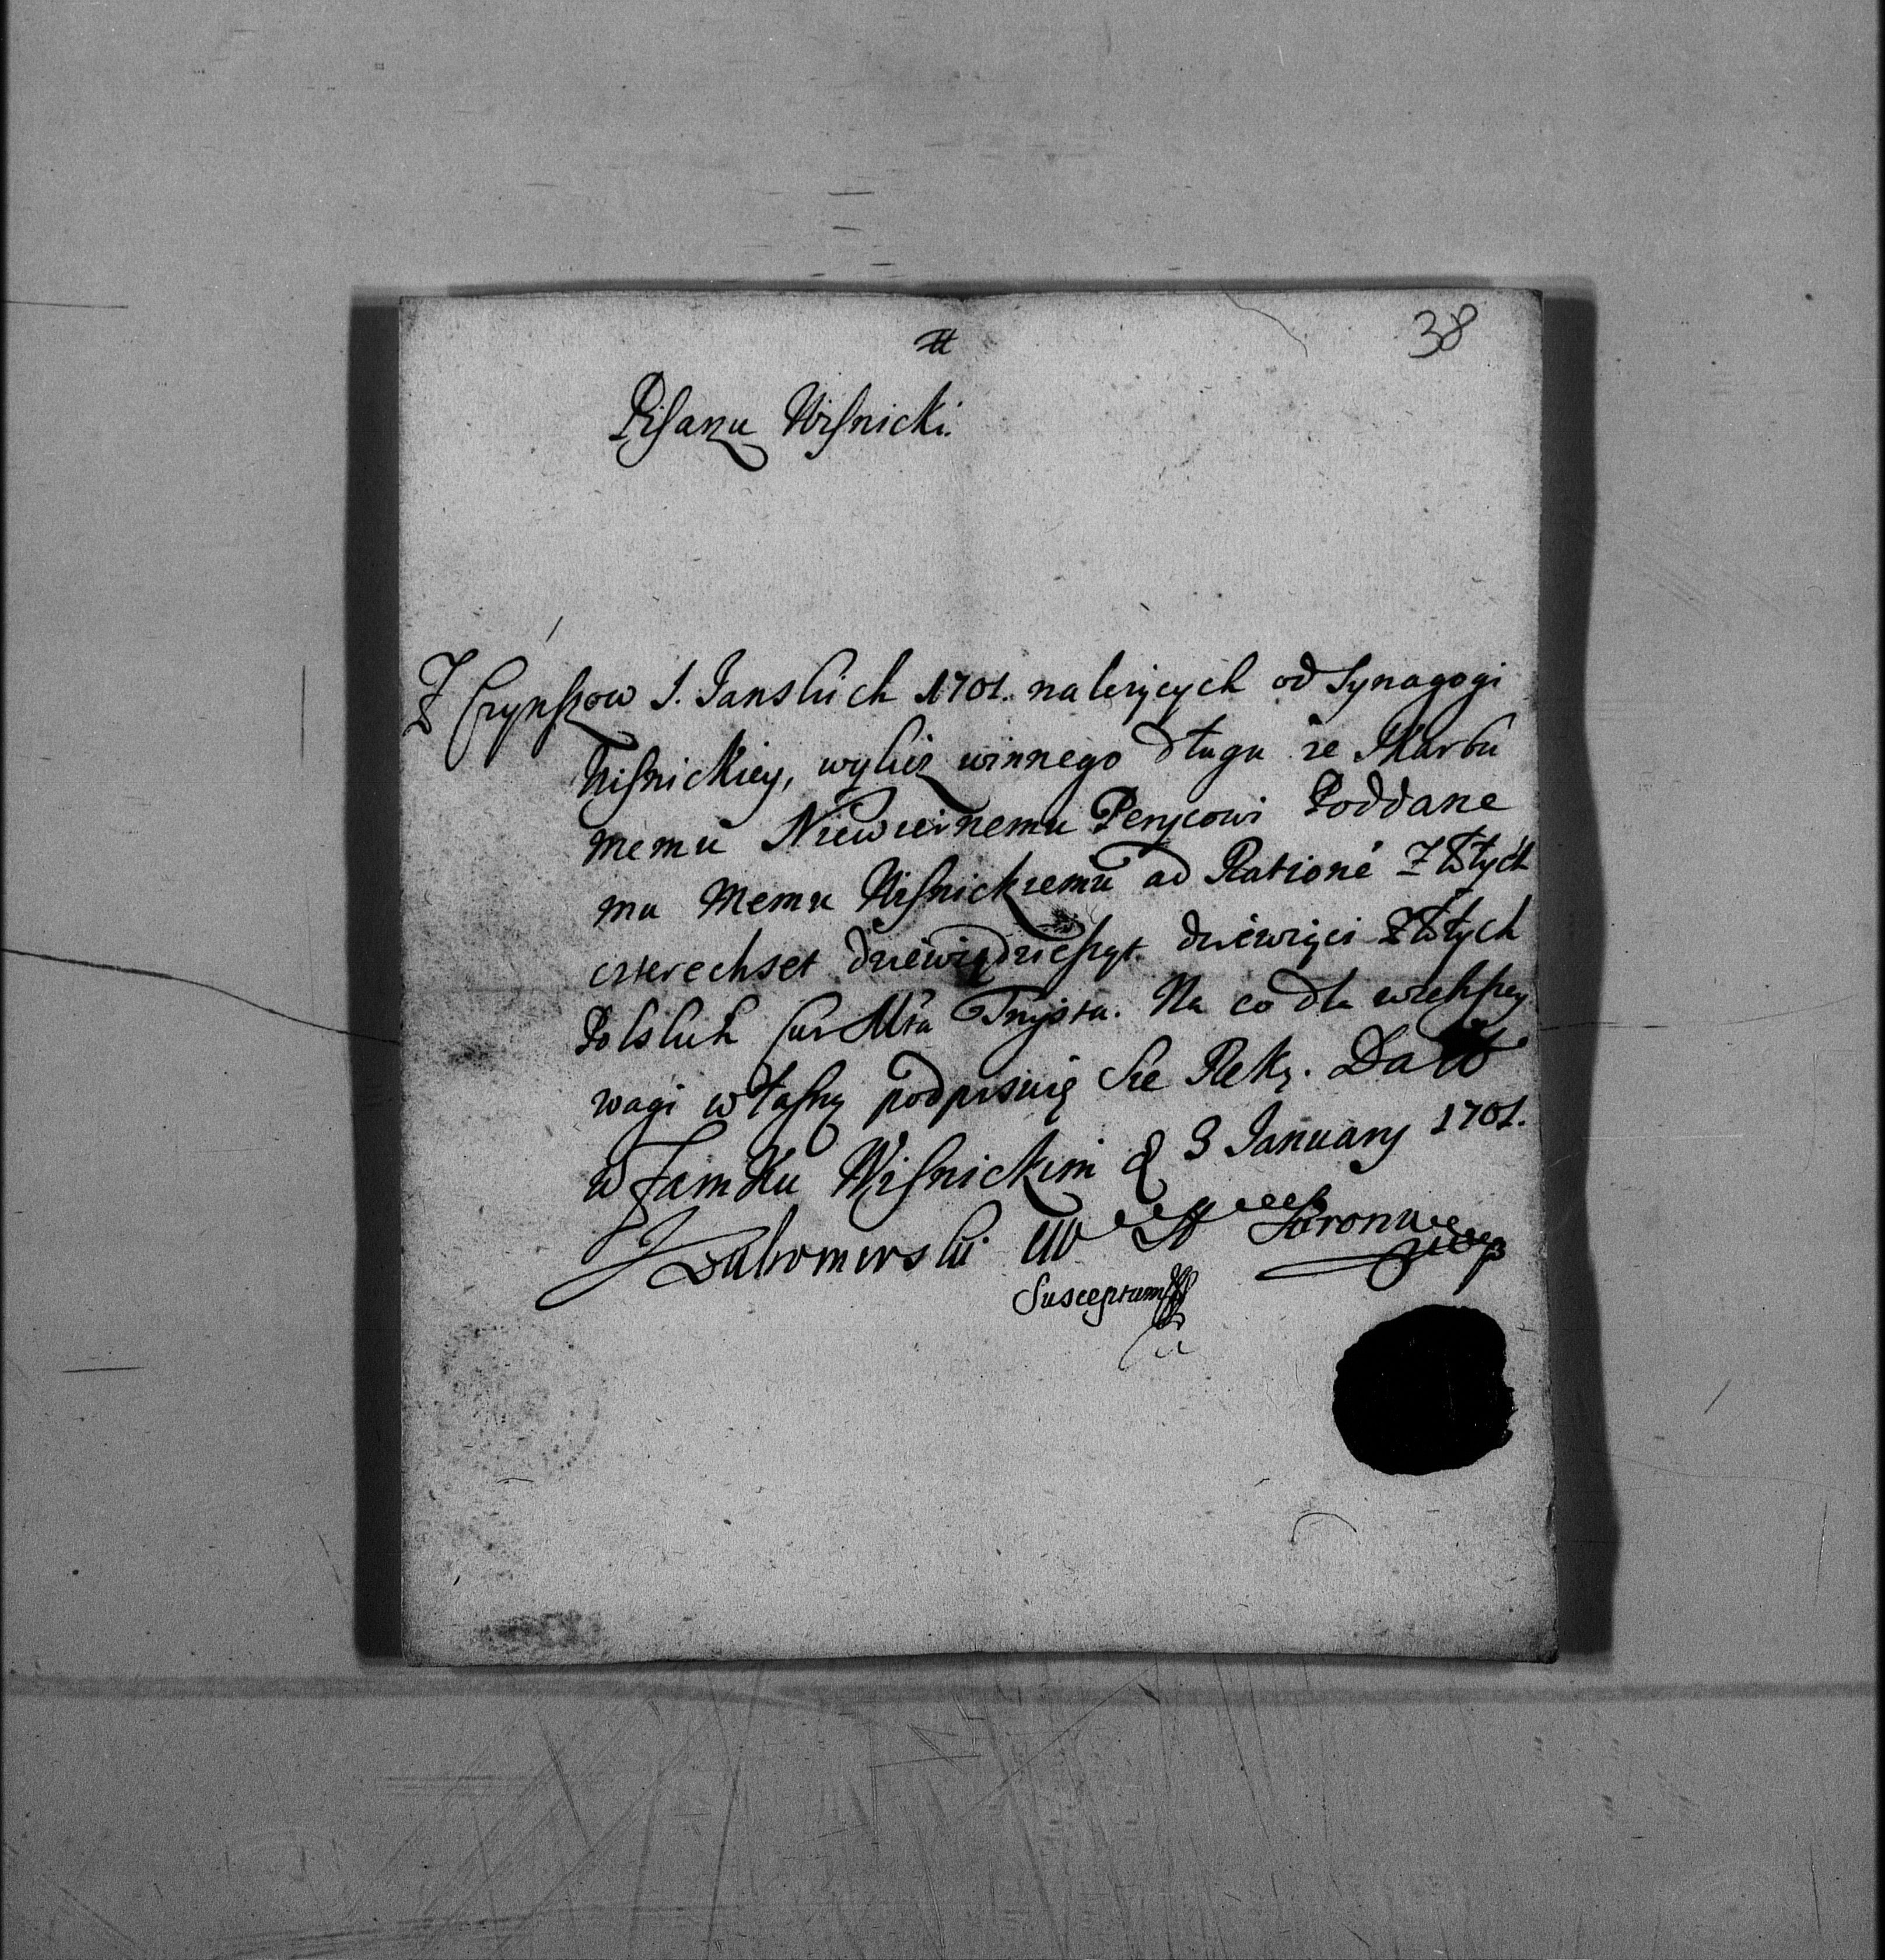 38
Pisarzu Wisnicki.
Z Czynszow S. Janskich 1701. nalezących od Synagogi
Wisnickiey, wylicz winnego długu ze Skarbu
memu Niewiernemu Perycowi Poddane
mu Memu Wisnickiemu ad Rationé Złłtych
czterechset dziewiędzieszyt. dziewięci Złłtych
Polskich Na co dla wiekszey
wagi własną podpisuię Sie Ręką. Datt
w Zamku Wisnickim d 3 January 1701.
J Lubomirski Koronny
Susceptum